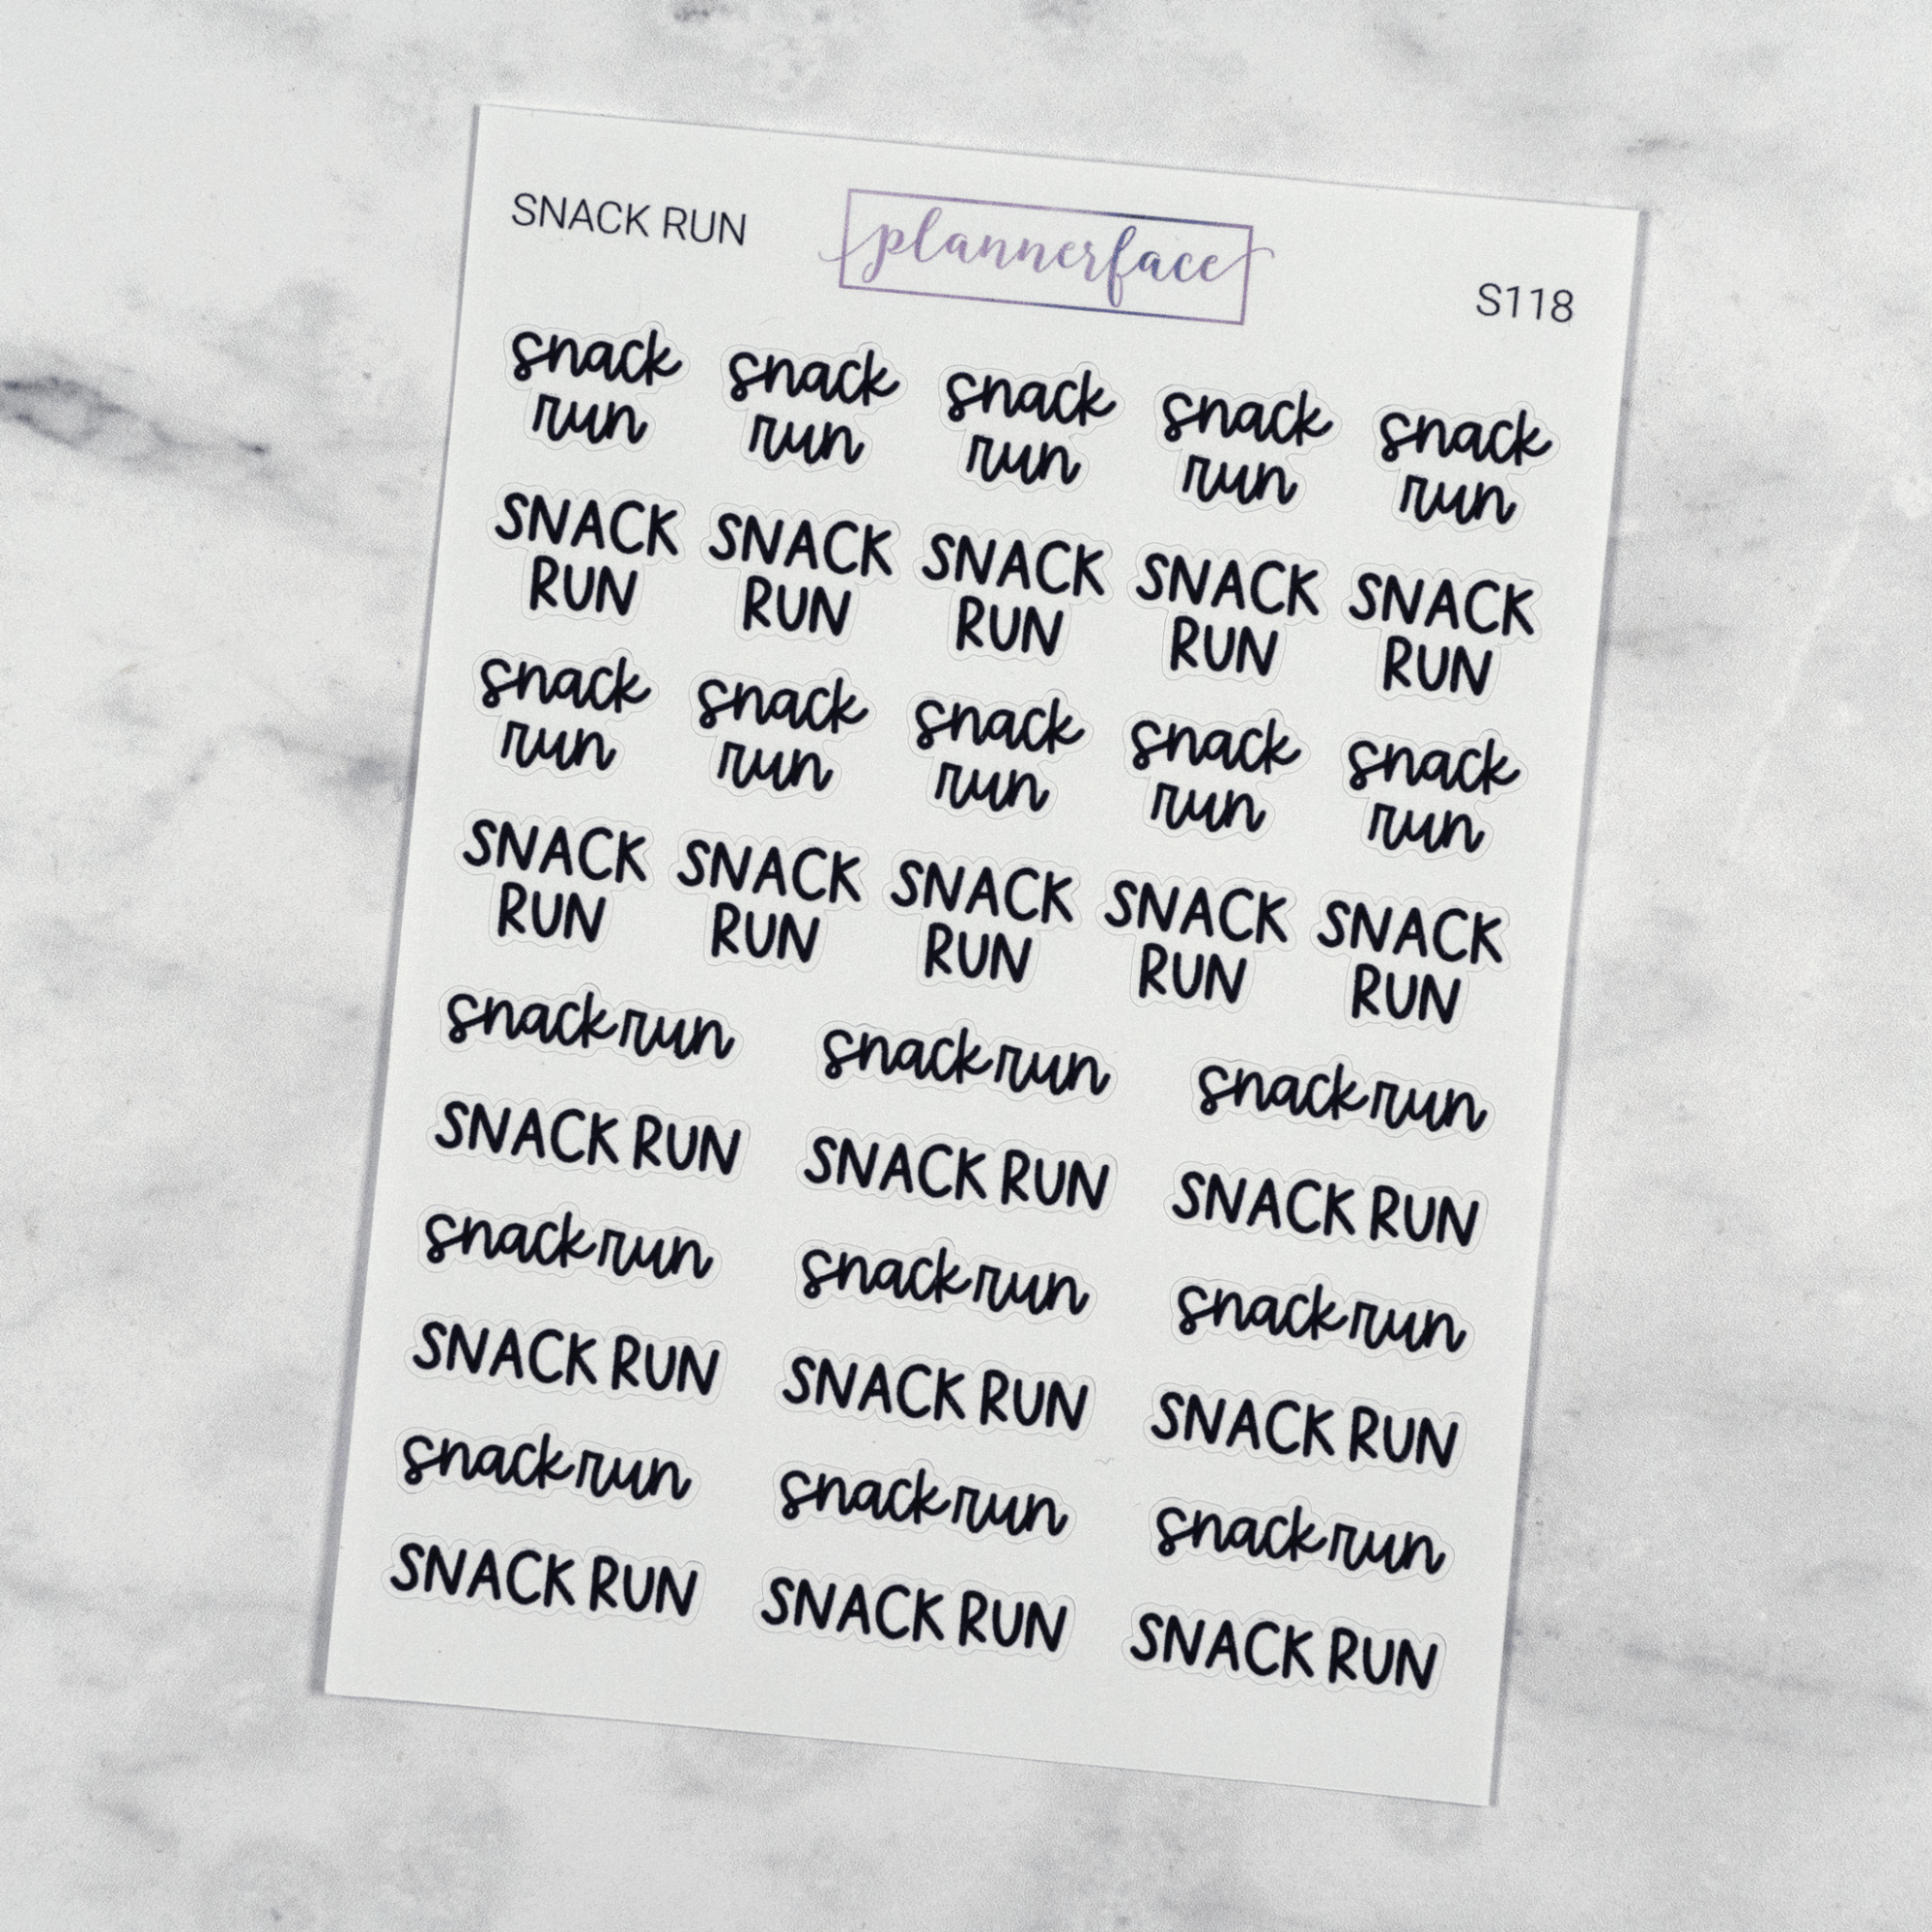 SNACK RUN plannerface S118
snack snack snack snack snack
run run run run run
SNACK SNACK SNACK SNACK SNACK
RUN RUN RUN RUN RUN
snack snack snack snack snack
run run run run run
SNACK SNACK SNACK SNACK SNACK
RUN RUN RUN RUN RUN
snack run snack run snack run
SNACK RUN SNACK RUN SNACK RUN
snack run snack run snack run
SNACK RUN SNACK RUN SNACK RUN
snack run snack run snack run
SNACK RUN SNACK RUN SNACK RUN